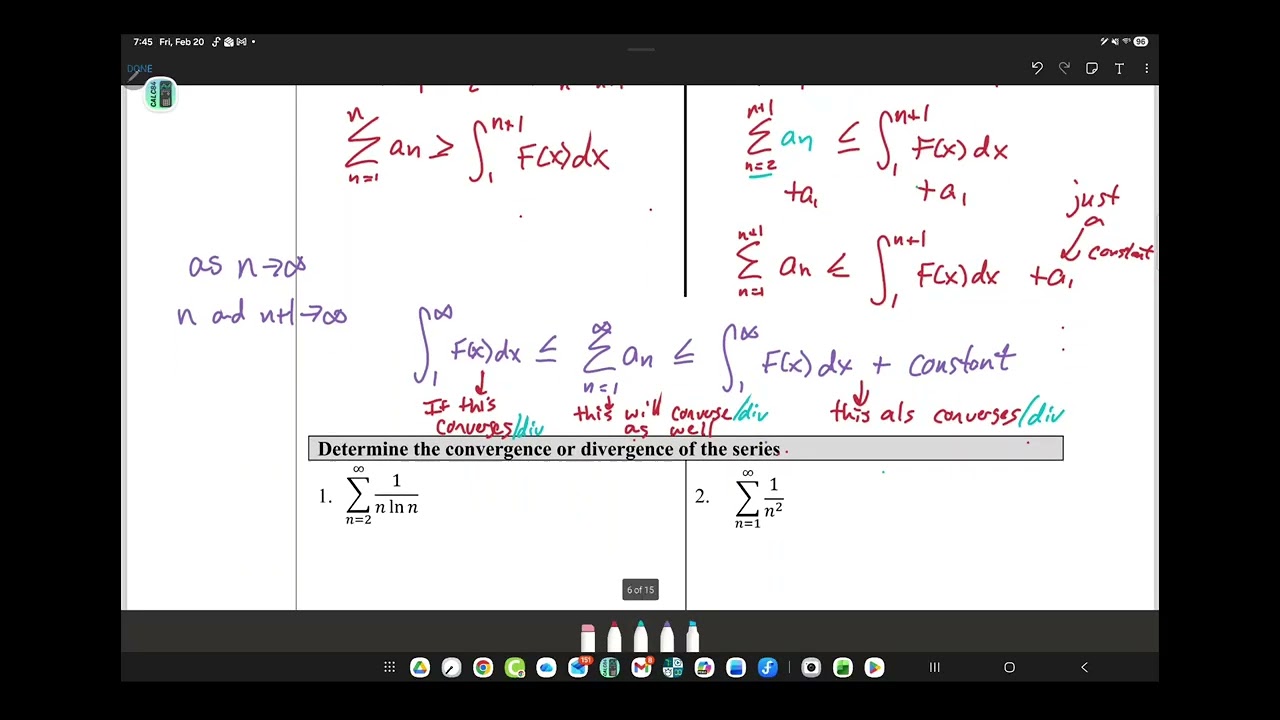 7:45 Fri, Feb 20
96
DONE
CALC84
n
∑ an ≥ ∫₁ⁿ⁺¹ F(x)dx
n=1
n+1
∑ an ≤ ∫₁ⁿ⁺¹ F(x)dx
n=2
+a₁ +a₁
just
a
constant
n+1
∑ an ≤ ∫₁ⁿ⁺¹ F(x)dx +a₁
n=1
as n→∞
n and n+1→∞
∫₁^∞ F(x)dx ≤ ∑_{n=1}^∞ an ≤ ∫₁^∞ F(x)dx + constant
If this
converges/div
this will converse/div
as well
this als converges/div
Determine the convergence or divergence of the series
1. ∑_{n=2}^∞ 1/(n ln n)
2. ∑_{n=1}^∞ 1/n²
6 of 15
T
151
8